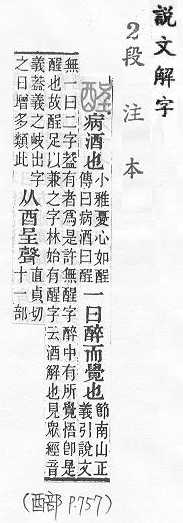 說文解字
2段注本
酲 病酒也 小雅憂心如酲
傳曰病酒曰酲 一曰醉而覺也 節南山正
義引說文
無一曰二字蓋有者爲是許無醒字醉中有所覺悟卽是
醒也故酲足以兼之字林始有醒字云酒解也見眾經音
義蓋義之岐出字
之日增多類此 从酉呈聲 直貞切
十一部
(酉部 P.757)